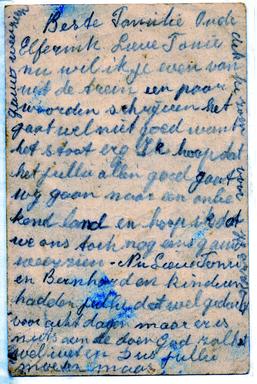 Beste Familie Oude
Elferink Lieve Tonie
nu wil ik je even van
uit de trein een paar
woorden schrijven het
gaat wel niet goed want
het stoot erg Ik hoop dat
het jullie allen goed gaat
wij gaan naar een onbe
kend land en hoop ik dat
we ons toch nog eens gauw
weerzien. Nu Lieve Tonie
en Bernhard en kinderen
hadden jullie dat wel gedacht
voor acht dagen maar er is
niets aan de doen God zal het
wel weten Dus jullie
moeten maar
gauw weerzien